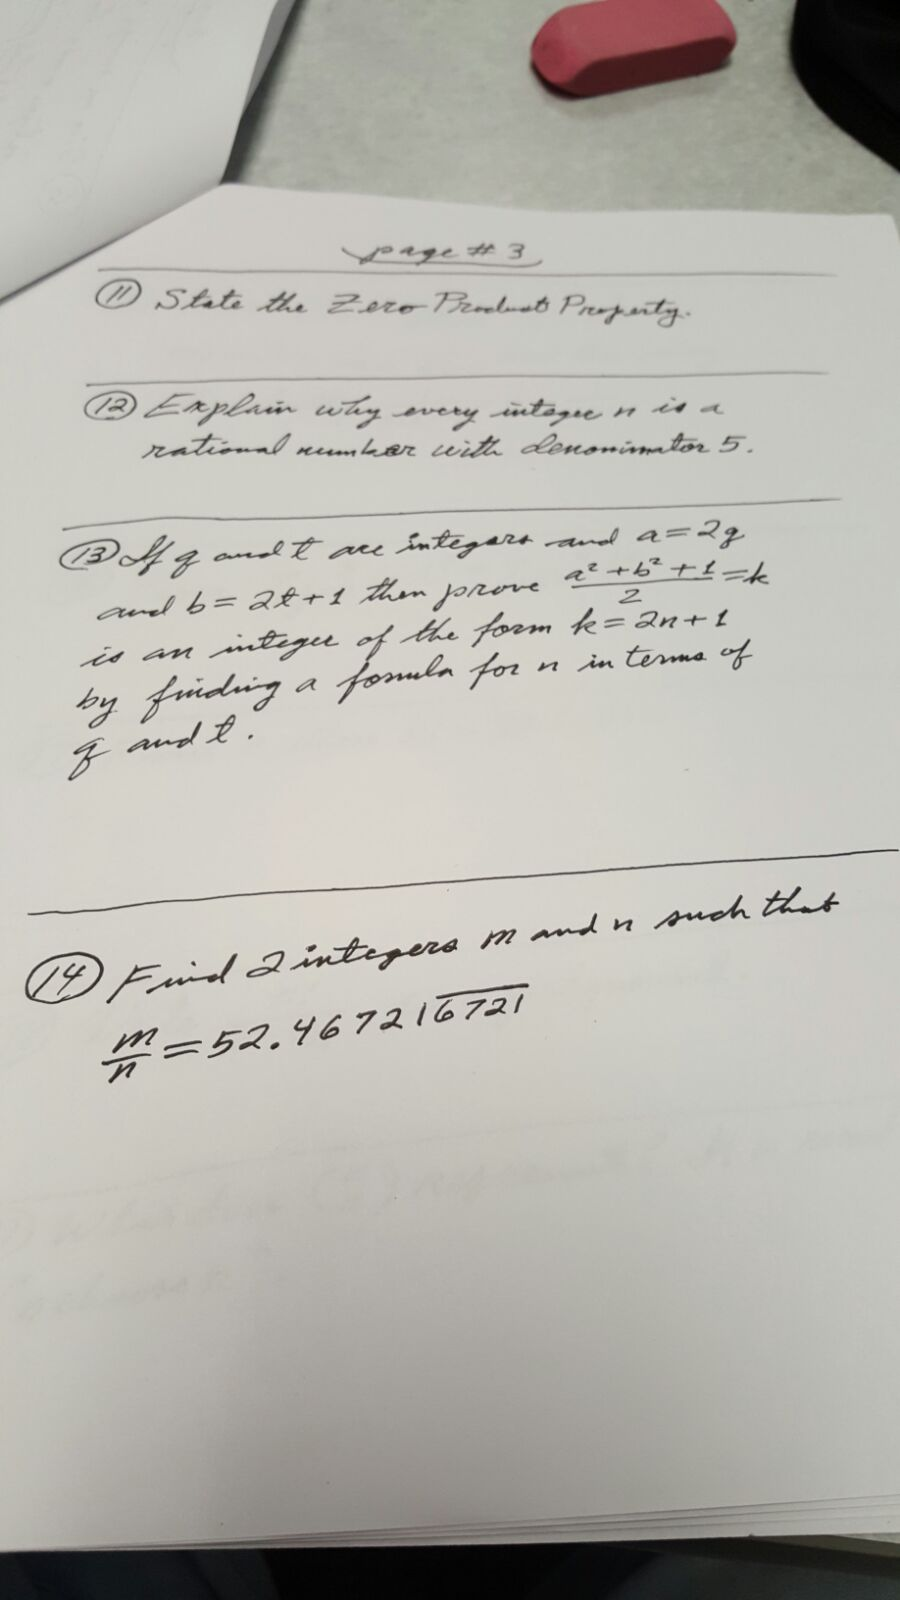 page # 3
⑪ State the Zero Product Property.
⑫ Explain why every integer n is a
rational number with denominator 5.
⑬ If q and t are integers and a = 2q
and b = 2t + 1 then prove (a² + b² + 1)/2 = k
is an integer of the form k = 2n + 1
by finding a fomula for n in terms of
q and t.
⑭ Find 2 integers m and n such that
m/n = 52.467216̅7̅2̅1̅